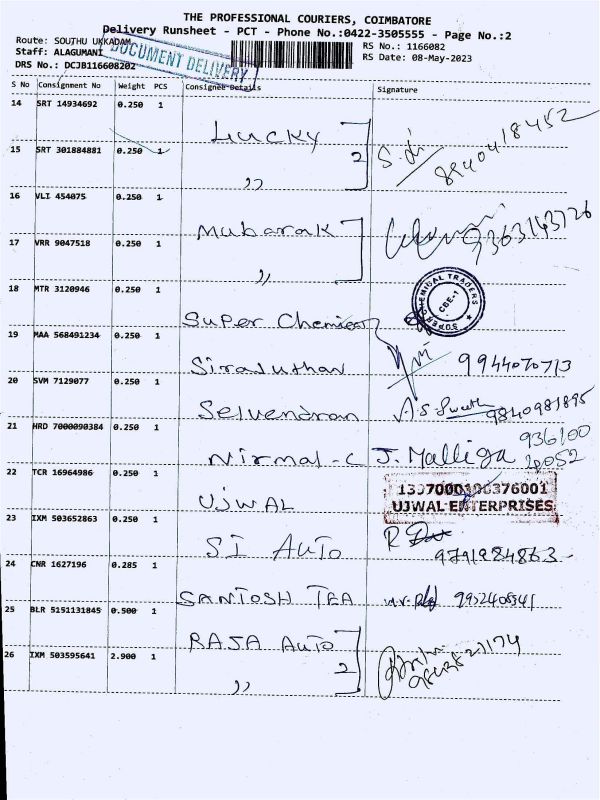 THE PROFESSIONAL COURIERS, COIMBATORE
Delivery Runsheet - PCT - Phone No.:0422-3505555 - Page No.:2
Route: SOUTHU UKKADAM
RS No.: 1166082
Staff: ALAGUMANI
RS Date: 08-May-2023
DRS No.: DCJB116608202
DOCUMENT DELIVERY
S No Consignment No Weight PCS Consignee Details Signature
14 SRT 14934692 0.250 1 Lucky 2 8940418452
15 SRT 301884881 0.250 1 ,,
16 VLI 454075 0.250 1 Mubarak 9363143726
17 VRR 9047518 0.250 1 ,,
18 MTR 3120946 0.250 1 Super Chemical
SUPER CHEMICAL TRADERS CBE-1
19 MAA 568491234 0.250 1 Sirajuthav 9944070713
20 SVM 7129077 0.250 1 Selvendran 9840981895
21 HRD 7000090384 0.250 1 Nirmal - C J. Malliga
22 TCR 16964986 0.250 1 UJWAL
UJWAL ENTERPRISES
23 IXM 503652863 0.250 1 SI AUTO 9791284863
24 CNR 1627196 0.285 1 SANTOSH TEA
25 BLR 5151131845 0.500 1 RAJA AUTO 2
26 IXM 503595641 2.900 1 ,,